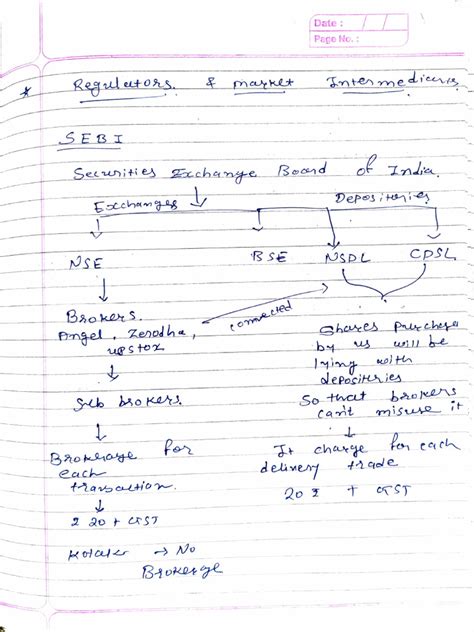 Date :
Page No. :
* Regulators. & market Intermediaries
SEBI
Securities Exchange Board of India.
Exchanges
Depositories
NSE
BSE
NSDL
CDSL
Brokers.
Angel, Zerodha,
upstox
connected
Sub brokers.
Brokerage for
each
transaction.
₹ 20 + GST
Kotak → No
Brokerge
Shares purchase
by us will be
lying with
depositeries
So that brokers
can't misuse it
It charge for each
delivery trade
20 ₹ + GST